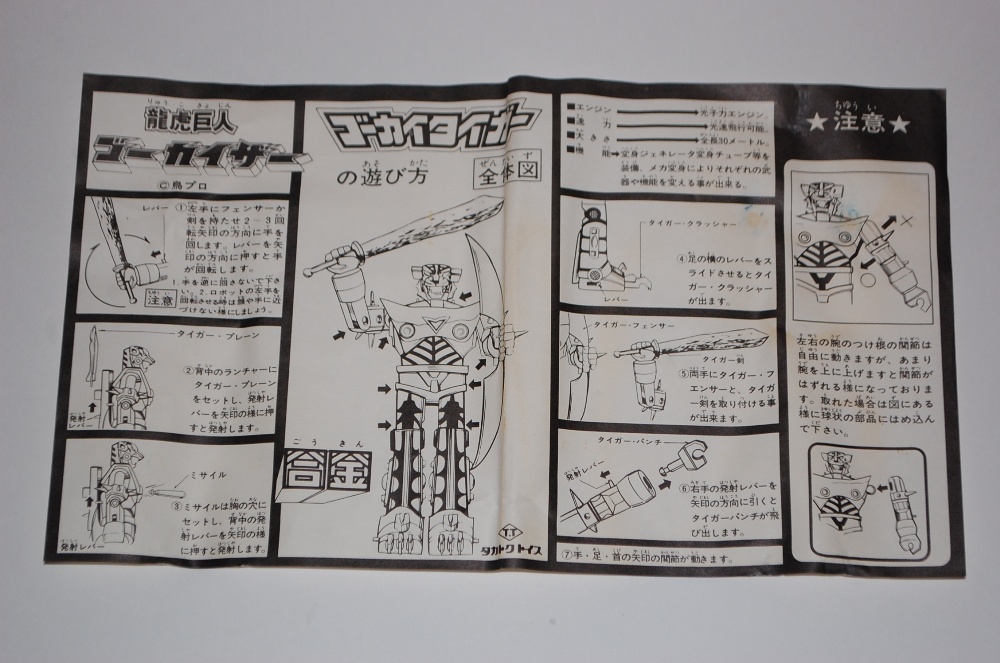 りゅうこきょじん
龍虎巨人
ゴーカイザー
©鳥プロ
レバー
①左手にフェンサーか
剣を持たせ2-3回
転矢印の方向に手を
回します。レバーを矢
印の方向に押すと手
が回転します。
注意
1.手を逆に回さないで下さ
い。2.ロボットの左手を
回転させる時は顔や手に近
づけない様にしましょう。
タイガー・プレーン
②背中のランチャーに
タイガー・プレーン
をセットし、発射レ
バーを矢印の様に押
すと発射します。
発射レバー
ミサイル
③ミサイルは胸の穴に
セットし、背中の発
射レバーを矢印の様
に押すと発射します。
発射レバー
ゴーカイタイガー
あそ かた
の遊び方
ぜんたいず
全体図
ごうきん
合金
T.T
タカトクトイス
■エンジン→光子力エンジン。
■速力→光速飛行可能。
■大きさ→全長30メートル。
■機能→変身ジェネレータ変身チューブ等を
装備、メカ変身によりそれぞれの武
器や機能を変える事が出来る。
タイガー・クラッシャー
④足の横のレバーをス
ライドさせるとタイ
ガー・クラッシャー
が出ます。
レバー
タイガー・フェンサー
タイガー剣
⑤両手にタイガー・フ
ェンサーと、タイガ
ー剣を取り付ける事
が出来ます。
タイガー・パンチ
発射レバー
⑥右手の発射レバーを
矢印の方向に引くと
タイガーパンチが飛
び出します。
⑦手・足・首の矢印の関節が動きます。
ちゅうい
★注意★
左右の腕のつけ根の関節は
自由に動きますが、あまり
腕を上に上げますと関節が
はずれる様になっておりま
す。取れた場合は図にある
様に球状の部品にはめ込ん
で下さい。